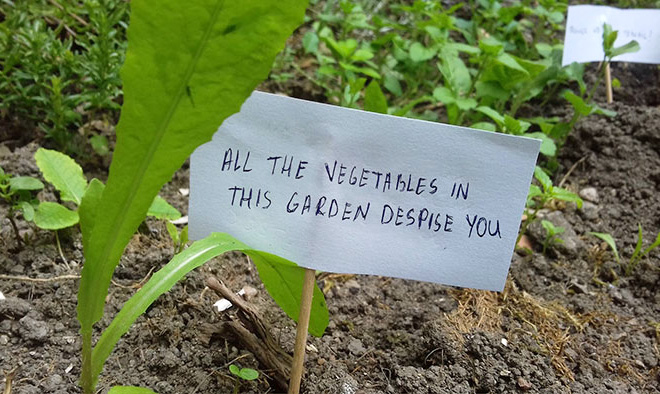 ALL THE VEGETABLES IN
THIS GARDEN DESPISE YOU